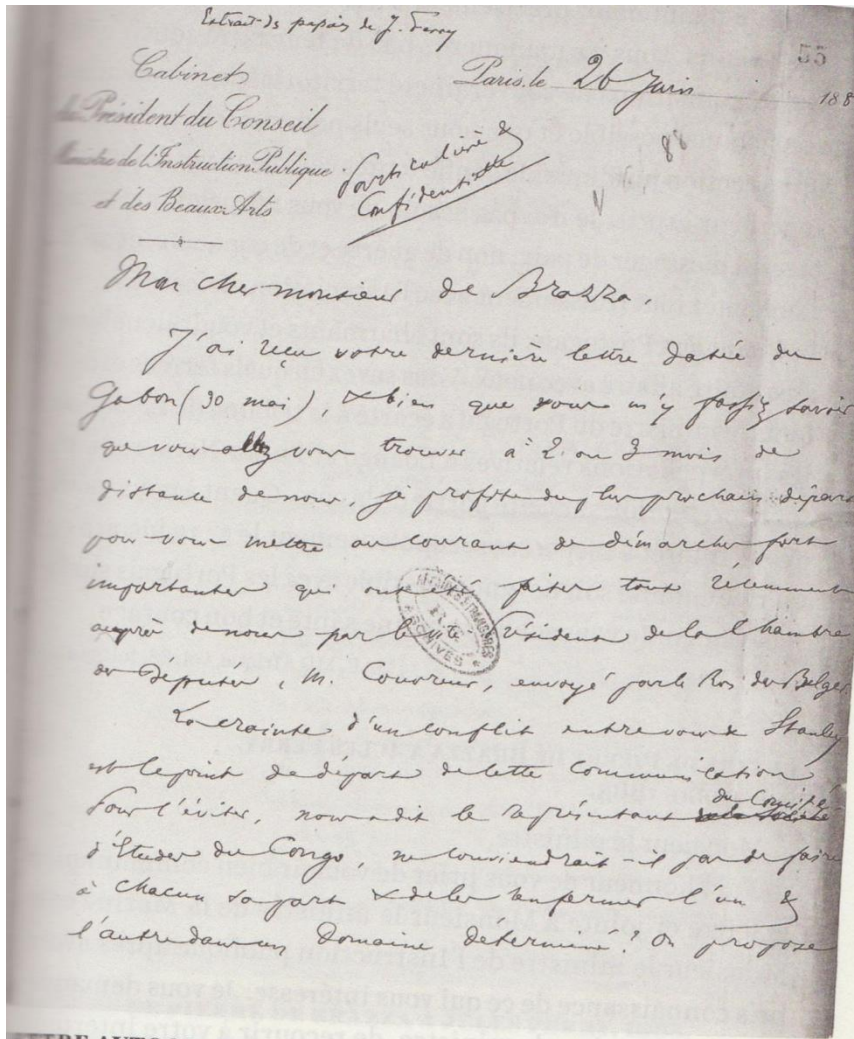 Extrait des papiers de J. Ferry
55
Cabinet
du Président du Conseil
Ministre de l'Instruction Publique
et des Beaux-Arts
Paris, le 26 Juin 188
Particulière &
Confidentielle
Mon cher monsieur de Brazza,
J'ai reçu votre dernière lettre datée du
Gabon (30 mai), & bien que vous m'y fassiez savoir
que vous allez vous trouver à 2 ou 3 mois de
distance de nous, je profite du plus prochain départ
pour vous mettre au courant de démarches fort
importantes qui ont été faites tout récemment
auprès de nous par le Vice Président de la Chambre
des Députés, M. Couvreur, envoyé par le Roi des Belges
La crainte d'un conflit entre vous & Stanley
est le point de départ de cette communication
Pour l'éviter, nous a dit le représentant du Comité
d'Etudes du Congo, ne conviendrait-il pas de faire
à chacun sa part & de les renfermer l'un &
l'autre dans un Domaine determiné? On propose
AFFAIRES ETRANGERES
R.F.
ARCHIVES